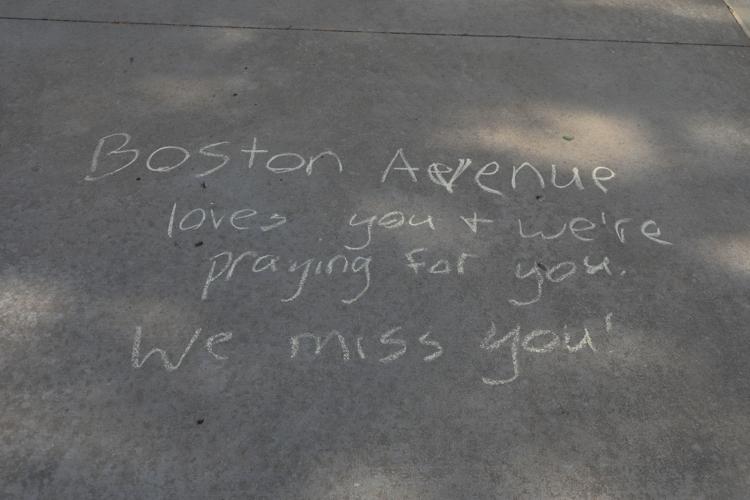 Boston Avenue
loves you + we're
praying for you.
We miss you!